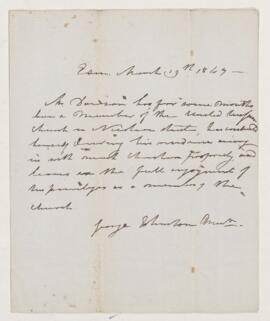 Edin. March 19th 1847 —
Mr Davidson has for some months
been a Member of the United
Church in Nicolson Street, has conducted
himself during his residence among
us with much Christian propriety and
leaves in the full enjoyment of
the privileges as a member of the
church
George Johnston Minr.